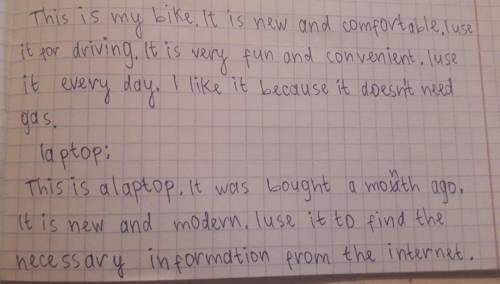 This is my bike. It is new and comfortable. I use
it for driving. It is very fun and convenient. I use
it every day. I like it because it doesn't need
gas.
laptop:
This is a laptop. It was bought a month ago.
It is new and modern. I use it to find the
necessary information from the internet.